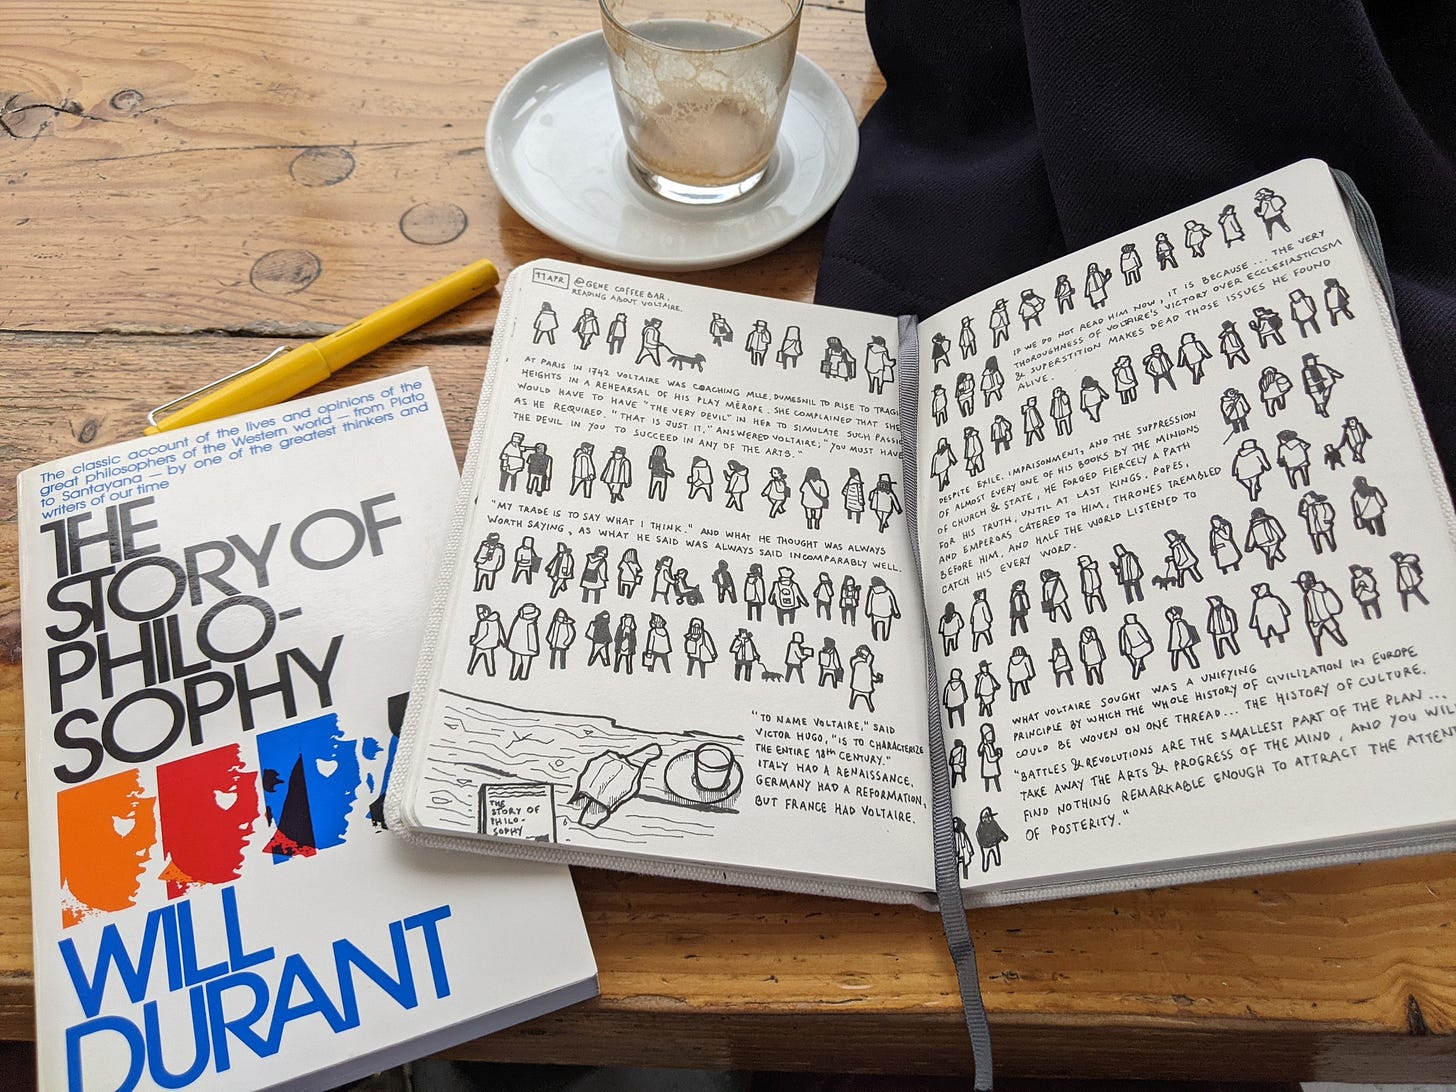 The classic account of the lives and opinions of the
great philosophers of the Western world — from Plato
to Santayana — by one of the greatest thinkers and
writers of our time
THE
STORY OF
PHILO-
SOPHY
WILL
DURANT
11 APR
@GENE COFFEE BAR.
READING ABOUT VOLTAIRE.
AT PARIS IN 1742 VOLTAIRE WAS COACHING MLLE. DUMESNIL TO RISE TO
HEIGHTS IN A REHEARSAL OF HIS PLAY MÉROPE. SHE COMPLAINED THAT SHE
WOULD HAVE TO HAVE "THE VERY DEVIL" IN HER TO SIMULATE SUCH
AS HE REQUIRED. "THAT IS JUST IT," ANSWERED VOLTAIRE; "YOU MUST HAVE
THE DEVIL IN YOU TO SUCCEED IN ANY OF THE ARTS."
"MY TRADE IS TO SAY WHAT I THINK." AND WHAT HE THOUGHT WAS ALWAYS
WORTH SAYING, AS WHAT HE SAID WAS ALWAYS SAID INCOMPARABLY WELL.
THE
STORY OF
PHILO-
SOPHY
"TO NAME VOLTAIRE," SAID
VICTOR HUGO, "IS TO CHARACTERIZE
THE ENTIRE 18th CENTURY."
ITALY HAD A RENAISSANCE,
GERMANY HAD A REFORMATION,
BUT FRANCE HAD VOLTAIRE.
IF WE DO NOT READ HIM NOW, IT IS BECAUSE ... THE VERY
THOROUGHNESS OF VOLTAIRE'S VICTORY OVER ECCLESIASTICISM
& SUPERSTITION MAKES DEAD THOSE ISSUES HE FOUND
ALIVE.
DESPITE EXILE, IMPRISONMENT, AND THE SUPPRESSION
OF ALMOST EVERY ONE OF HIS BOOKS BY THE MINIONS
OF CHURCH & STATE, HE FORGED FIERCELY A PATH
FOR HIS TRUTH, UNTIL AT LAST KINGS, POPES,
AND EMPERORS CATERED TO HIM, THRONES TREMBLED
BEFORE HIM, AND HALF THE WORLD LISTENED TO
CATCH HIS EVERY WORD.
WHAT VOLTAIRE SOUGHT WAS A UNIFYING
PRINCIPLE BY WHICH THE WHOLE HISTORY OF CIVILIZATION IN EUROPE
COULD BE WOVEN ON ONE THREAD... THE HISTORY OF CULTURE.
"BATTLES & REVOLUTIONS ARE THE SMALLEST PART OF THE PLAN ...
TAKE AWAY THE ARTS & PROGRESS OF THE MIND, AND YOU WILL
FIND NOTHING REMARKABLE ENOUGH TO ATTRACT THE
OF POSTERITY."